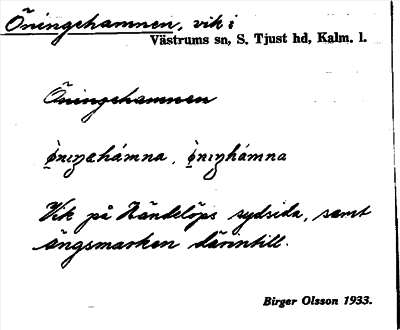 Öningehamnen, vik i
Västrums sn, S. Tjust hd, Kalm. l.
Öningehamnen
Vik på Händelöps sydsida, samt
ängsmarken därintill.
Birger Olsson 1933.